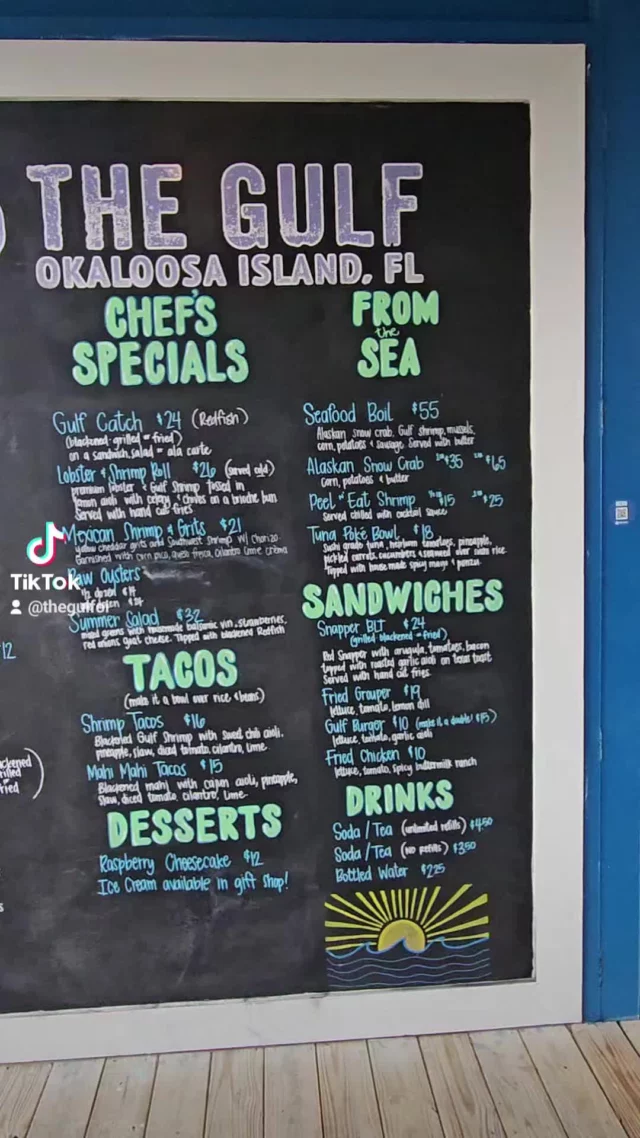 THE GULF
OKALOOSA ISLAND, FL
CHEF'S
SPECIALS
Gulf Catch $24 (Redfish)
(blackened grilled or fried)
on a sandwich, salad or ala carte
Lobster & Shrimp Roll $26 (served cold)
premium lobster & Gulf Shrimp tossed in
lemon aioli with celery & chives on a brioche bun
Served with hand cut fries
Mexican Shrimp & Grits $21
yellow cheddar grits and Southwest Shrimp w/ Chorizo
Garnished with corn pico, queso fresca, cilantro lime crema
Raw Oysters
½ dozen $19
Summer Salad $32
mixed greens with housemade balsamic vin, strawberries,
red onions, goat cheese. Topped with blackened Redfish
TACOS
(make it a bowl over rice & beans)
Shrimp Tacos $16
Blackened Gulf Shrimp with sweet chili aioli,
pineapple, slaw, diced tomato, cilantro, lime
Mahi Mahi Tacos $15
Blackened mahi with cajun aioli, pineapple,
slaw, diced tomato, cilantro, lime
DESSERTS
Raspberry Cheesecake $12
Ice Cream available in gift shop!
FROM
the
SEA
Seafood Boil $55
Alaskan snow crab, Gulf shrimp, mussels,
corn, potatoes & sausage. Served with butter
Alaskan Snow Crab $35 $65
Corn, potatoes & butter
Peel n' Eat Shrimp $15 $25
Served chilled with cocktail sauce
Tuna Poké Bowl $18
Sushi grade tuna, heirloom tomatoes, pineapple,
pickled carrots, cucumbers & seaweed over sushi rice
Topped with house made spicy mayo & ponzu
SANDWICHES
Snapper BLT $24
(grilled blackened or fried)
Red Snapper with arugula, tomatoes, bacon
topped with roasted garlic aioli on Texas toast
Served with hand cut fries
Fried Grouper $19
lettuce, tomato, lemon dill
Gulf Burger $10 (make it a double! $15)
lettuce, tomato, garlic aioli
Fried Chicken $10
lettuce, tomato, spicy buttermilk ranch
DRINKS
Soda/Tea (unlimited refills) $4.50
Soda/Tea (No refills) $3.50
Bottled Water $2.25
TikTok
@thegulfoi
12